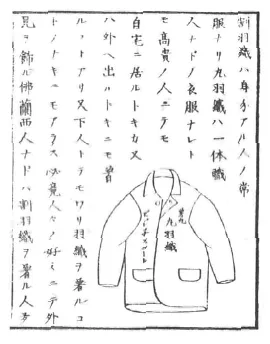 割羽織ハ身分アル人ノ常
服ナリ丸羽織ハ一体職
人ナドノ衣服ナレト
モ高貴ノ人ニテモ
自宅ニ居ルトキカ又
ハ外ヘ出ルトキニモ著
ルコトアリ又下人トテモワリ羽織ヲ著ルコ
トノナキニモアラス畢竟人々ノ好ミニテ外
見ヲ飾ル佛蘭西人ナドハ割羽織ヲ著ル人多
丸羽織
ビジネスコート